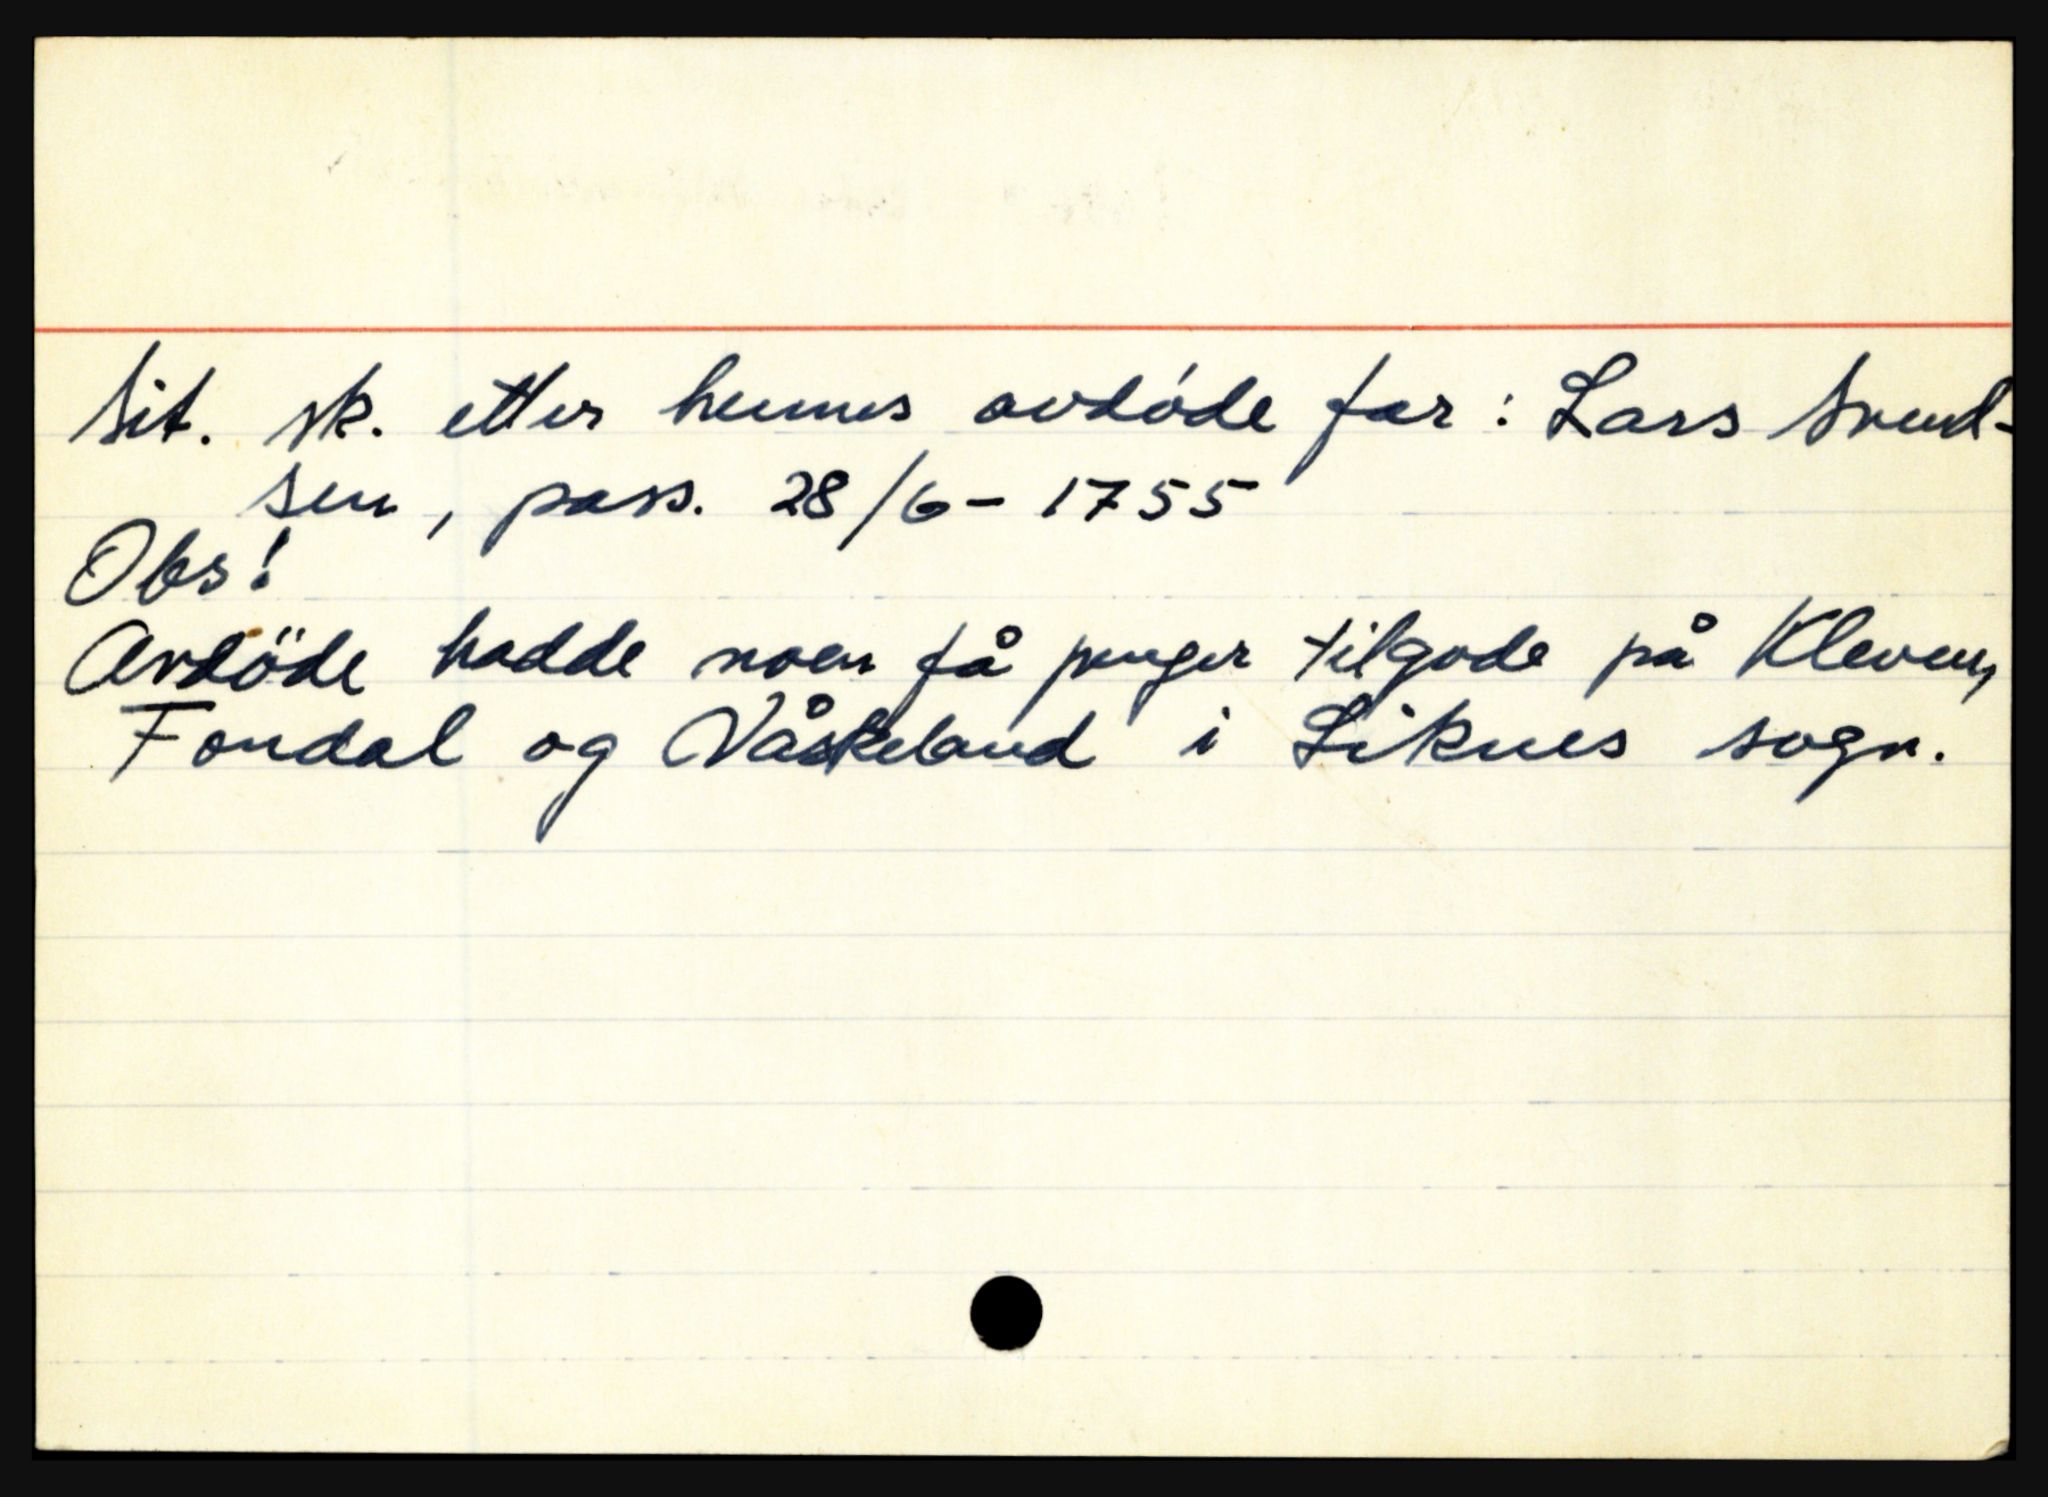 Sit. sk. etter hennes avdøde far: Lars Svend-
sen, pass. 28/6-1755
Obs!
Avdöde hadde noen få penger tilgode på Kleven,
Fondal og Våskeland i Liknes sogn.